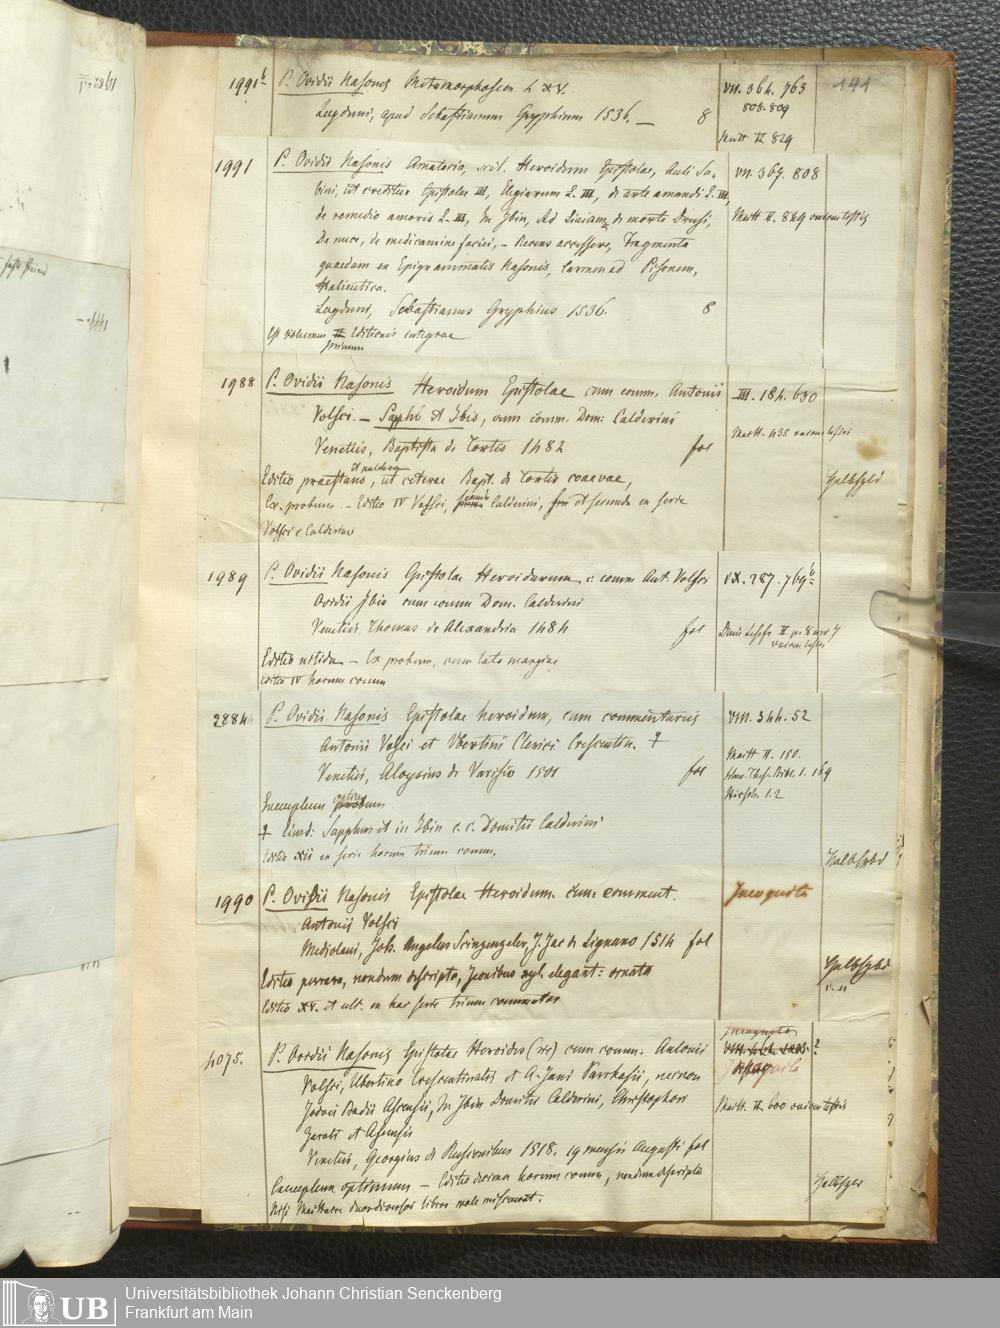 141
1991b P. Ovidii Nasonis Metamorphoseon L XV. VII. 364. 763
808. 809
Lugduni, apud Sebastianum Gryphium 1536. — 8
Maitt II 829
1991 P. Ovidii Nasonis Amatoria, scil. Heroidum Epistolae, Auli Sa- VII. 367. 808
bini, ut creditur Epistolae III, Elegiarum L. III, de arte amandi L. III,
de remedio amoris L. III, In Ibin, Ad Liviam, de morte Drusi, Maitt II. 829
De nuce, de medicamine faciei, – Recens accessere, Fragmenta
quaedam ex Epigrammatis Nasonis, Carmen ad Pisonem,
Halieutica.
Lugduni, Sebastianus Gryphius 1536. 8
Est volumen II Editionis integrae
primum
1988 P. Ovidii Nasonis Heroidum Epistolae cum comm. Antonii III. 184. 630
Volsci. – Sappho et Ibis, cum comm. Dom. Calderini
Maitt. 435
Venetiis, Baptista de Tortis 1482 fol
Editio praestans, ut ceterae Bapt. de Tortis coaevae, Halbfzbd
Ex. probum. – Editio IV Volsci, Calderini, et secunda in serie
Volsci & Calderini
1989 P. Ovidii Nasonis Epistolae Heroidarum c. comm Ant. Volsci IX. 287. 769b
Ovidii Ibis cum comm Dom. Calderini
Venetiis, Thomas de Alexandria 1484 fol
Editio nitida – Ex probum, cum lato margine
Editio IV horum comm
2884 P. Ovidii Nasonis Epistolae heroidum, cum commentariis VIII. 344. 52
Antonii Volsci et Ubertini Clerici Crescentin. ‡
Maitt II. 150.
Venetiis, Aloysius de Varisio 1501 fol
1. 169
Hirsch. 1. 2
Exemplum
‡ Eiusd: Sapphus et in Ibin c. c. Domitii Calderini
Editio XII in serie horum trium comm.
Halbfrbd
1990 P. Ovidii Nasonis Epistolae Heroidum. cum comment. Incognita
Antonii Volsci
Mediolani, Joh. Angelus Scinzenzeler, J. Jac de Lignano 1514 fol
Editio perrara, nondum descripta, Iconibus xyl. elegant: ornata
Editio XV. et ult. in hac serie trium
Halbfzbd
4075. P. Ovidii Nasonis Epistolae Heroides (sic) cum comm. Antonii Incognita
Volsci, Ubertino Crescentinatis et A. Jani Parrhasii, necnon
Jodoci Badii Ascensii, In Ibin Domitii Calderini, Christophori Maitt. II. 600
Zaroti et Ascensii
Venetiis, Georgius de Rusconibus 1518. 19 mensis Augusti fol
Exemplum optimum – Editio decima horum comm, nondum descripta
Nisi Maittaire duos diversos libros male miscuerit.
Universitätsbibliothek Johann Christian Senckenberg
UB Frankfurt am Main